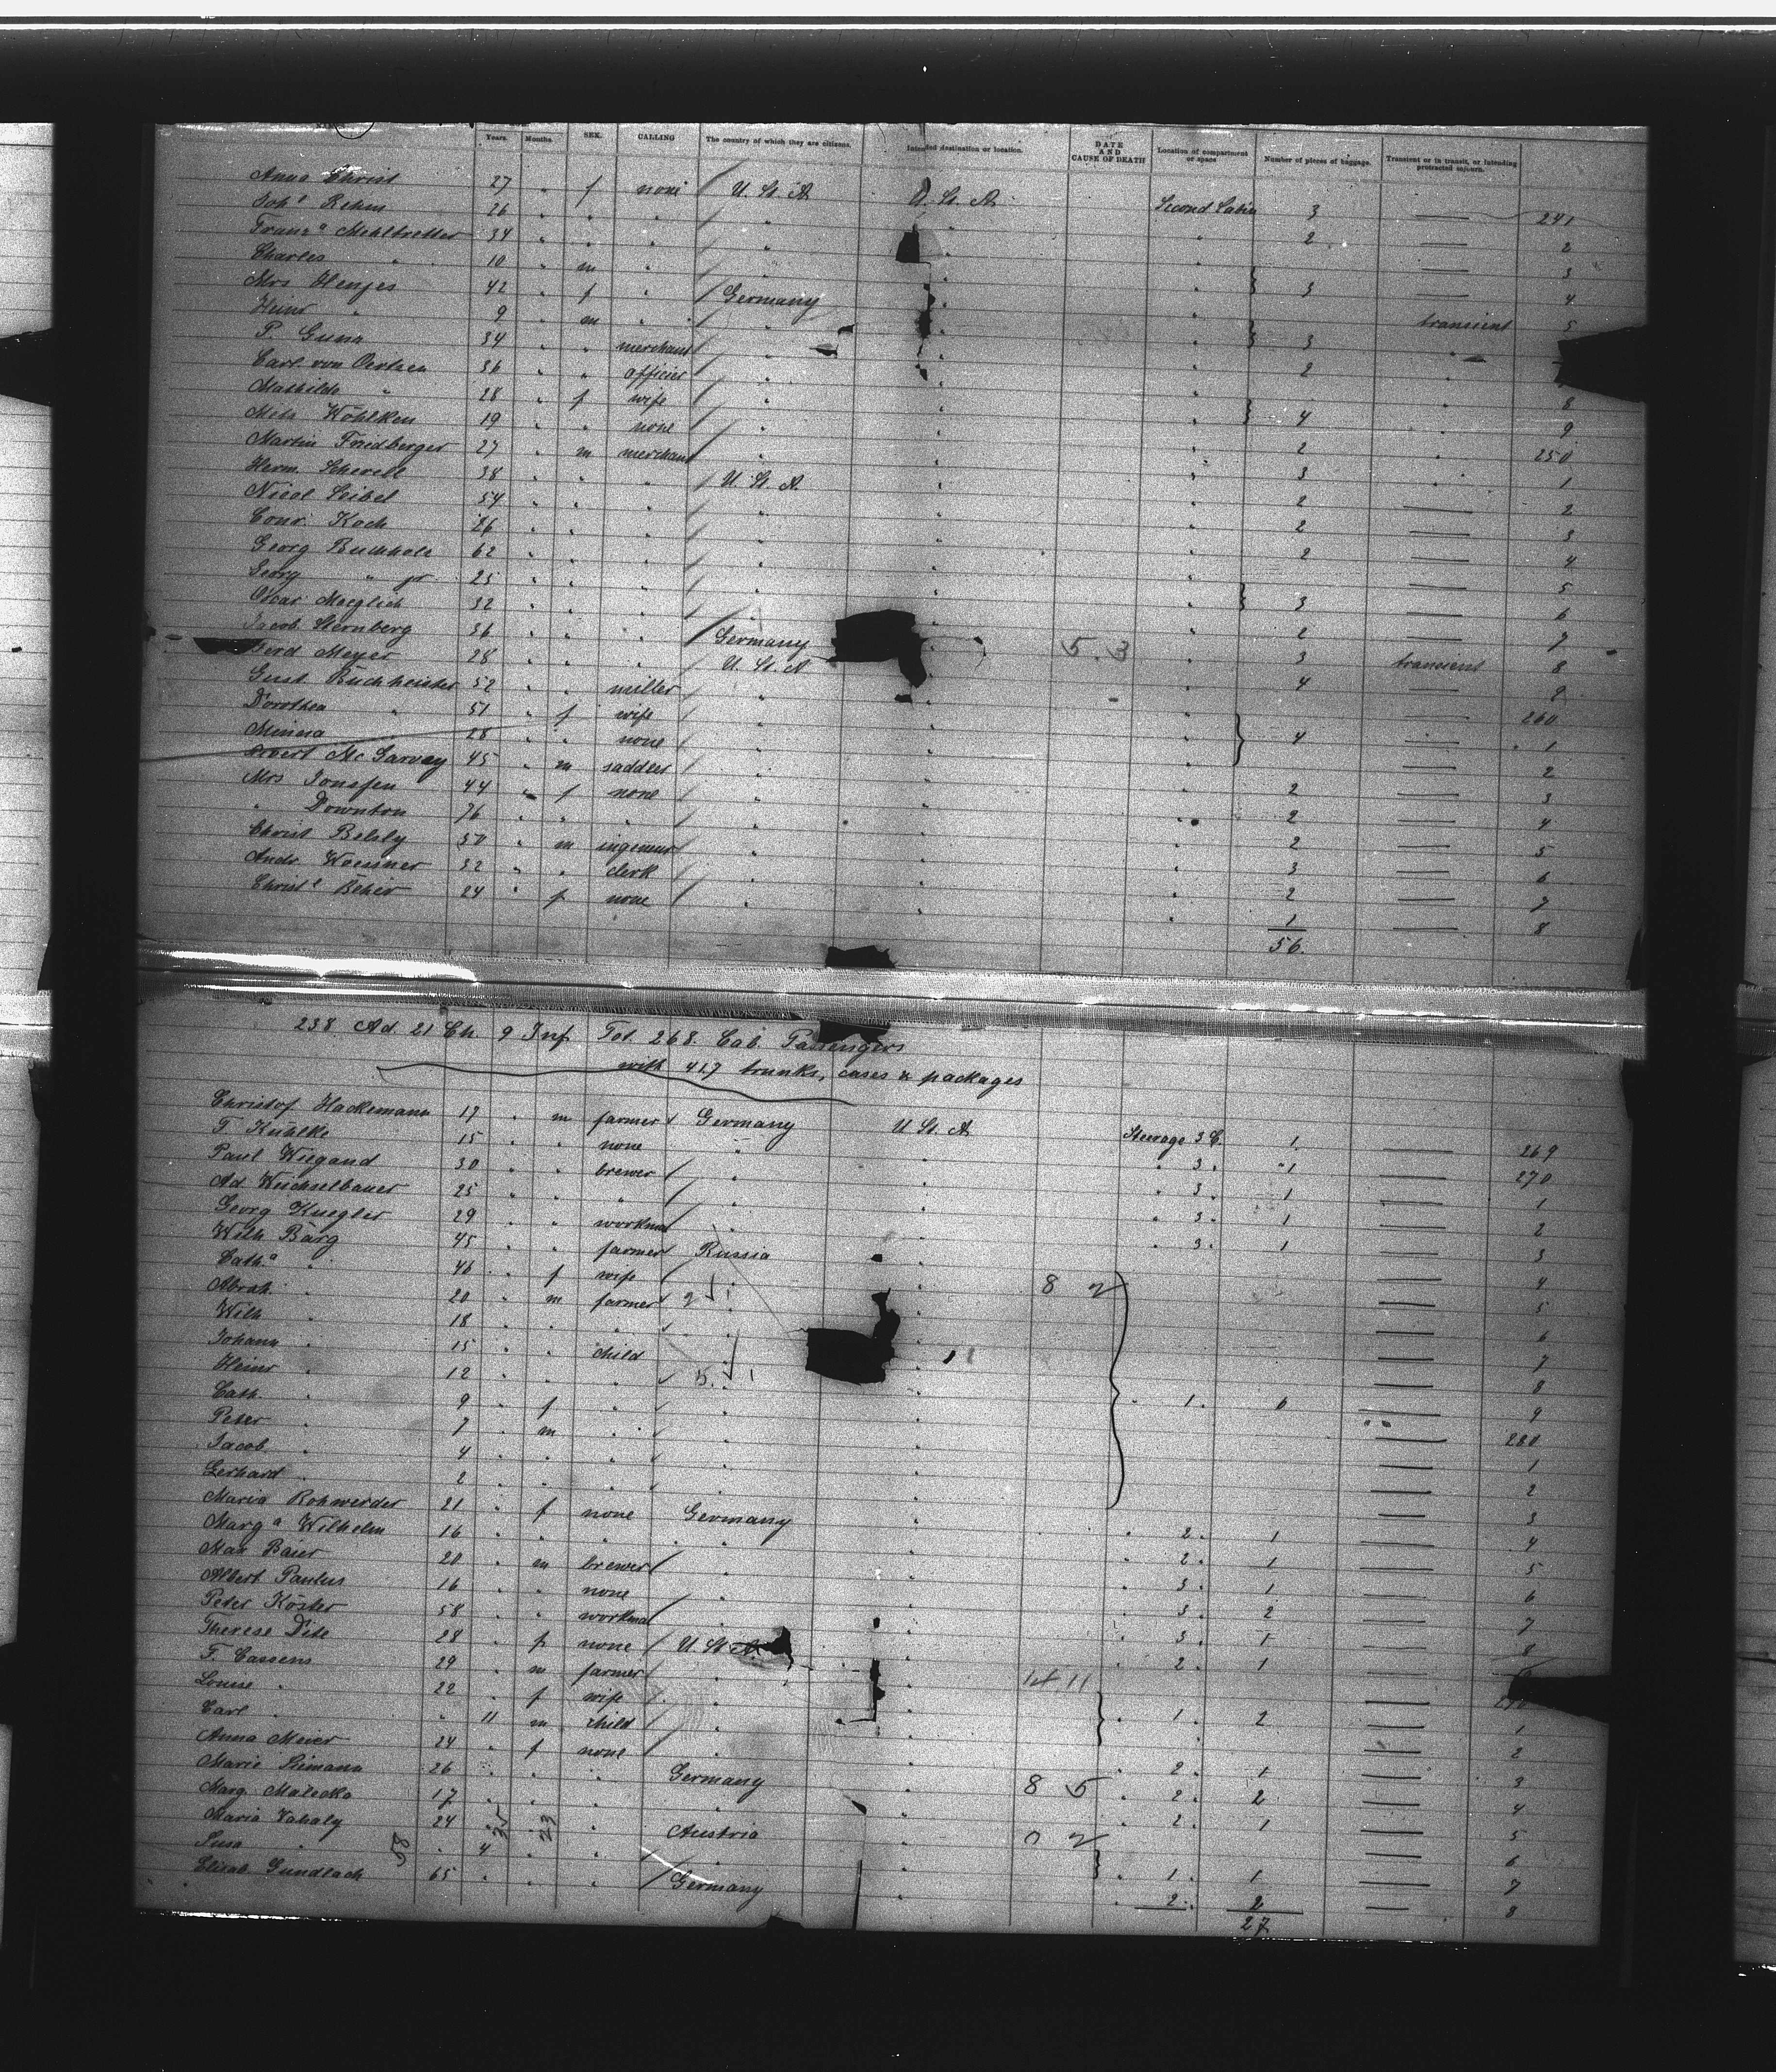 Years. Months. SEX. CALLING The country of which they are citizens. Intended destination or location. DATE AND CAUSE OF DEATH Location of compartment or space Number of pieces of baggage. Transient or in transit, or intending protracted sojourn.
Anna Christ 27 " f none U. St. A U. St. A. Second Cabin 3 — 241
Joh.a Rehm 26 " " " " " " 2 — 2
Franz.a Mehltretter 34 " " " " " — 3
Charles " 10 " m " " " " 3 — 4
Mrs Henjes 42 " f " Germany " " transient 5
Heinr " 9 " m " " " " 3 "
P. Gunz 34 " " merchant " " " 2 "
Carl von Oertzen 36 " " officier " " " 8
Mathilde " 28 " f wife " " " 4 " 9
Meta Wöhlken 19 " " none " " " 2 " 250
Martin Friedberger 27 " m merchant " " " 3 " 1
Herm. Scherell 38 " " " U. St. A. " " 2 — 2
Nicol Seibel 54 " " " " " " 2 — 3
Conr. Koch 26 " " " " " " 2 — 4
Georg Buchholz 62 " " " " " " — 5
Georg " jr 25 " " " " " " 3 — 6
Oscar Moeglich 32 " " " " " " 2 — 7
Jacob Sternberg 36 " " " Germany " 5.3 " 3 transient 8
Ferd Meyer 28 " " " U. St. A " " 4 — 9
Gust. Buchheister 52 " " miller " " " — 260
Dorothea " 51 " f wife " " " 4 — 1
Minna " 28 " " none " " " — 2
Robert Mc Garvay 45 " m saddler " " " 2 — 3
Mrs Jonassen 44 " f none " " " 2 — 4
" Downton 76 " " " " " " 2 — 5
Christ Belsly 50 " m ingenieur " " " 3 — 6
Andr. Woessner 32 " " clerk " " " 2 — 7
Christ.e Beher 24 " f none " " " 1 — 8
56.
238 Ad 21 Ch 9 Inf Tot. 268. Cab. Passengers
with 417 trunks, cases & packages
Christof Hackemann 17 " m farmer Germany U. St. A Steerage 3 C. 1. — 269
F Kühlke 15 " " none " " " 3. 1 — 270
Paul Wiegand 30 " " brewer " " " 3. 1 — 1
Ad Weichselbauer 25 " " " " " " 3. 1 — 2
Georg Kuegler 29 " " workman " " " 3. 1 — 3
Wilh Barg 45 " " farmer Russia " — 4
Cath.a " 46 " f wife " " 8 2 — 5
Abrah. " 20 " m farmer " " — 6
Wilh " 18 " " " " " — 7
Johann " 15 " " child " " — 8
Heinr " 12 " " " " " — 9
Cath. " 9 " f " " " " 1. 6 — 280
Peter " 7 " m " " " — 1
Jacob " 4 " " " " " — 2
Gerhard " 2 " " " " " — 3
Maria Rohwerder 21 " f none Germany " " 2. 1 — 4
Marg.a Wilhelm 16 " " " " " " 2. 1 — 5
Max Baier 20 " m brewer " " " 3. 1 — 6
Albert Paulus 16 " " none " " " 3. 2 — 7
Peter Köster 58 " " workman " " " 3. 1 — 8
Therese Dete 28 " f none U. St. A. " " 2. 1 —
F. Cassens 29 " m farmer " " 14 11 —
Louise " 22 " f wife " " " 1. 2 — 1
Carl " " 11 m child " " — 2
Anna Meier 24 " f none " " " 2. 1 — 3
Marie Simann 26 " " " Germany " 8 5 " 2. 2 — 4
Marg. Malecka 17 " " " " " " 2. 1 — 5
Maria Vahaly 24 " " " Austria " 0 2 — 6
Susa " " 4 " " " " " 1. 1 — 7
Elisab. Gundlach 65 " " " Germany " " 2. 2 — 8
58 35 23
27